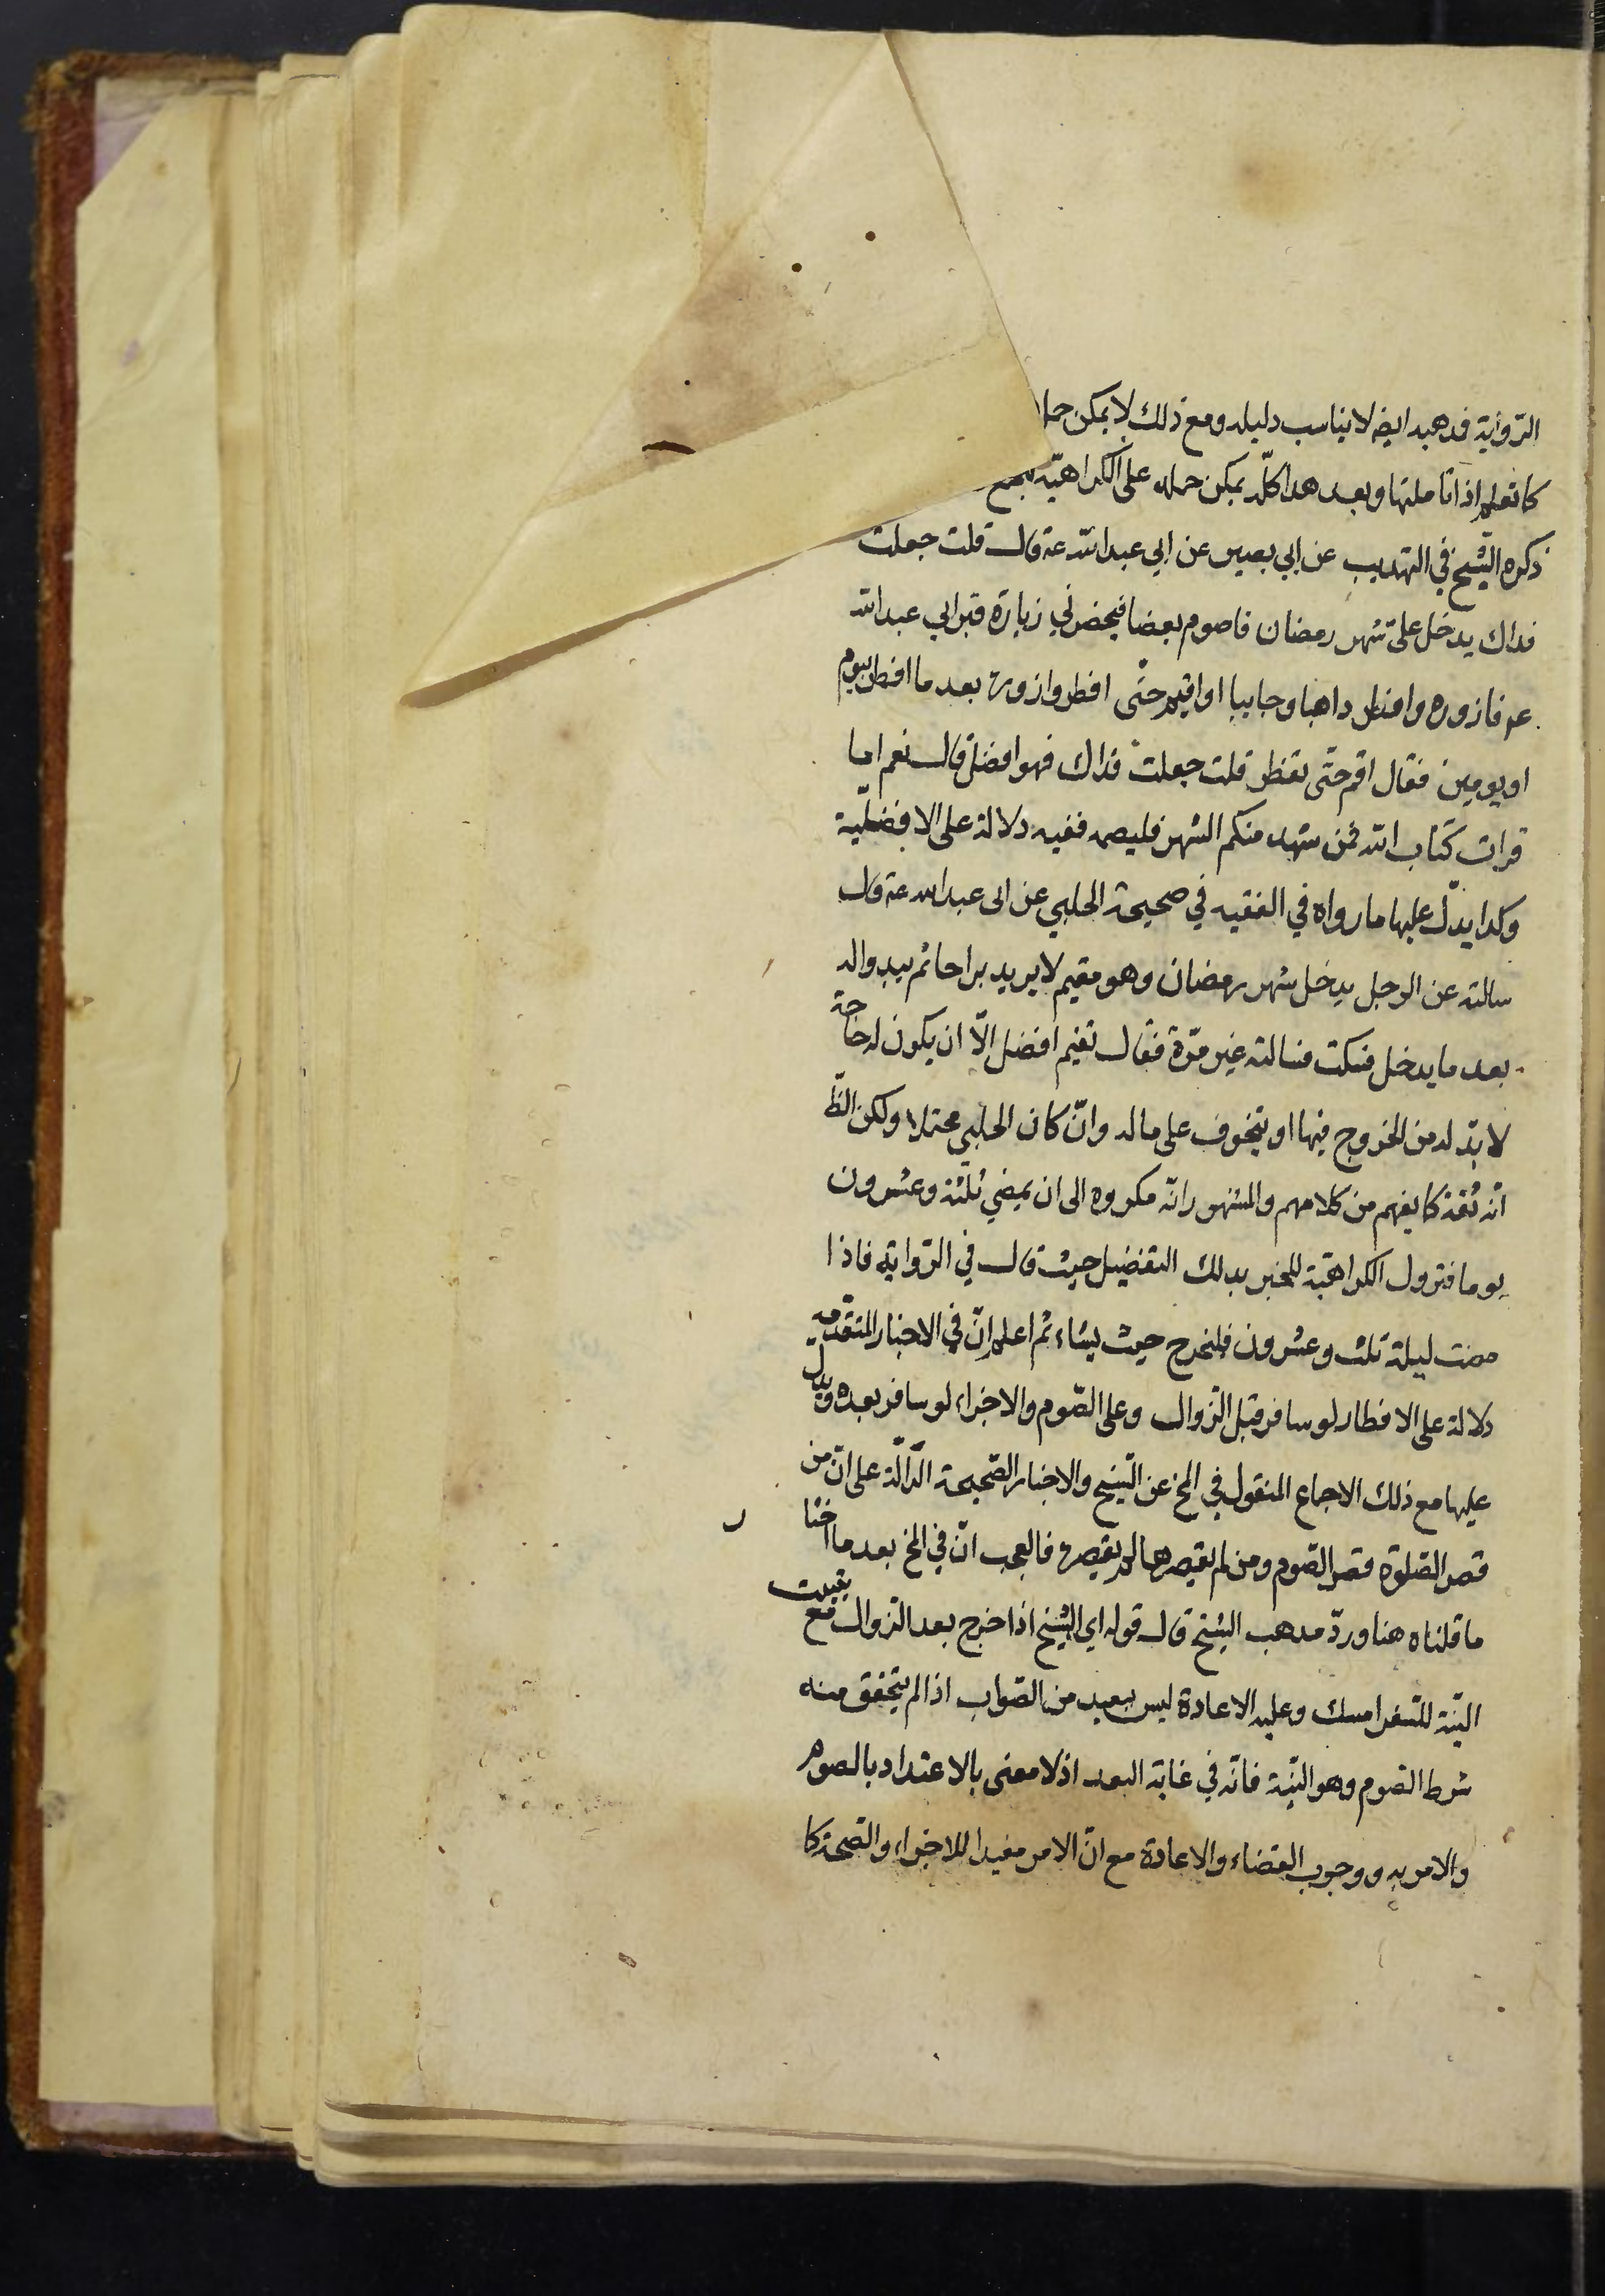 الرّواية فمذهبه ايضا لا يناسب دليله ومع ذلك لا يمكن حملـ
كما تعلم اذا تاملتها وبعد هذا كلّه يمكن حمله على الكراهيّة
ذكره الشّيخ في التهذيب عن ابي بصير عن ابي عبد الله ع قال قلت جعلت
فداك يدخل علىّ شهر رمضان فاصوم بعضا فيحضرني زيارة قبر ابي عبد الله
ع فازوره وافطر ذاهبا وجاييا او اقيم حتّى افطر وازوره بعد ما افطر بيوم
او يومين فقال اقم حتّى تفطر قلت جعلت فداك فهو افضل قال نعم اما
قرات كتاب الله فمن شهد منكم الشهر فليصمه ففيه دلالة على الافضليّة
وكذا يدلّ عليها ما رواه في الفقيه في صحيحة الحلبي عن ابى عبد الله ع قال
سالته عن الرجل يدخل شهر رمضان وهو مقيم لا يريد براحا ثم يبدو له
بعد ما يدخل فسكت فسالته غير مرّة فقال تقيم افضل الّا ان يكون له حاجة
لا بدّ له من الخروج فيها او يتخوف على ماله وانّ كان الحلبي محتملا ولكن الظّ
انه ثقة كما يفهم من كلامهم والمشهور انّه مكروه الى ان يمضي ثلثة وعشرون
يوما فتزول الكراهيّة للخبر بذلك التفضيل حيث قال في الرّواية فاذا
مضت ليلة ثلث وعشرون فليخرج حيث يشاء ثم اعلم انّ في الاخبار المتقدّمة
دلالة على الافطار لو سافر قبل الزّوال وعلى الصّوم والاجزاء لو سافر بعده ويدل
عليها مع ذلك الاجماع المنقول في المخ عن الشّيخ والاخبار الصّحيحة الدّالّة على انّ من
قصر الصّلوة قصر الصّوم ومن لم يقصرها لم يقصره فالعجب انّ في المخ بعد ما اختا
ر
ما قلناه هنا وردّ مذهب الشيخ قال قوله اي الشّيخ اذا خرج بعد الزّوال مع تبييت
النيّة للسّفر امسك وعليه الاعادة ليس ببعيد من الصّواب اذا لم يتحقق منه
شرط الصّوم وهو النيّة فانّه في غاية البعد اذ لا معنى بالاعتداد بالصوم
والامر به ووجوب القضاء والاعادة مع انّ الامر مفيدا للاجزاء والصّحة كما